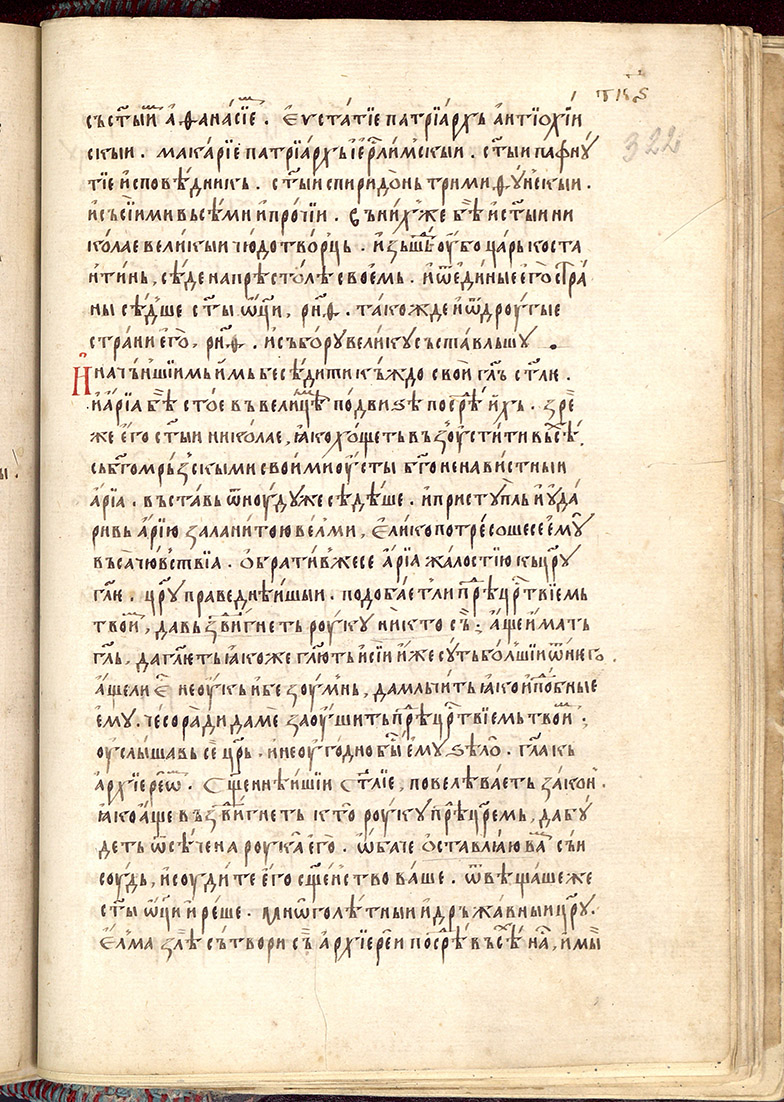 т҃кѕ
322
съст҃ыи а҆ѳанасїе . Еѵстатїе патрїархъ антїѡхїи
скыи . макарїе патрїархь і҆ер҃лимскыи . ст҃ыи пафну
тїе и҆сповѣдникь . ст҃ыи спиридѡнь тримиѳунскыи .
и҆ съ сїими въсѣми и҆ прочїи . съ нихже бѣ и҆ ст҃ыи ни
колае великыи чюдотворць . и҆зьшⷣе оубо царь коста
нтинь, сѣде на прѣстолѣ своемь . и҆ ѿ единые его стра
ны сѣдше ст҃ы ѿци, рн҃ѳ . такожде и҆ ѿ дроугые
страни его, рн҃ѳ . и҆ събору велику съставльшу .
И начьншїимь имь бесѣдити къждо свои гл҃ь ст҃лю .
и҆ арїа бѣ стое въ велицѣмь подвиѕѣ посрⷣѣ ихь . зре
же его ст҃ыи николае, ꙗко хощеть възоустити въсѣ
сь бг҃омрьзскыми своими оусты бг҃оненавистныи
арїа . въставь ѿноуду же сѣдѣше . и҆ приступль и҆ уда
ривь арїю за ланитою велми, Елико потресошесе ему
въса чювьствїа . обративжесе арїа жалостїю къ цр҃у
гл҃ю . цр҃у праведнѣишыи . подобает ли прⷣѣ црⷭ҇твїемь
твоимь, да въздвигнеть роуку никто съ ; аще имать
гл҃ь, да гл҃еть ꙗкоже гл҃ють и҆ сїи иже суть болшїи ѿ него .
аще ли Е неоукь и҆ безоумнь, да млъчить ꙗко и҆ пⷣобные
ему . чесо ради да ме заоушить прⷣѣ црⷭ҇твїемь твоимь ;
оуслышавь се цр҃ь . и҆ неоугодно бы ему ѕѣло . гл҃а къ
архїереѡмь . Сщ҃еннѣишїи ст҃лїе, повелѣваеть законь .
ꙗко аще въздвигнеть кто роуку прⷣѣ цр҃емь, да бу
деть ѿсѣчена роука его . ѡбаче оставлꙗю вамь сьи
соудь, и҆ соудите его сщ҃еньство ваше . ѿвѣщаше же
ст҃ы ѿци и҆ реше . мнѡголѣтныи и҆ дръжавныи цр҃у .
Елма злѣ сътвори съ архїереи посрⷣѣ въсѣⷯ наⷭ, и҆ мы